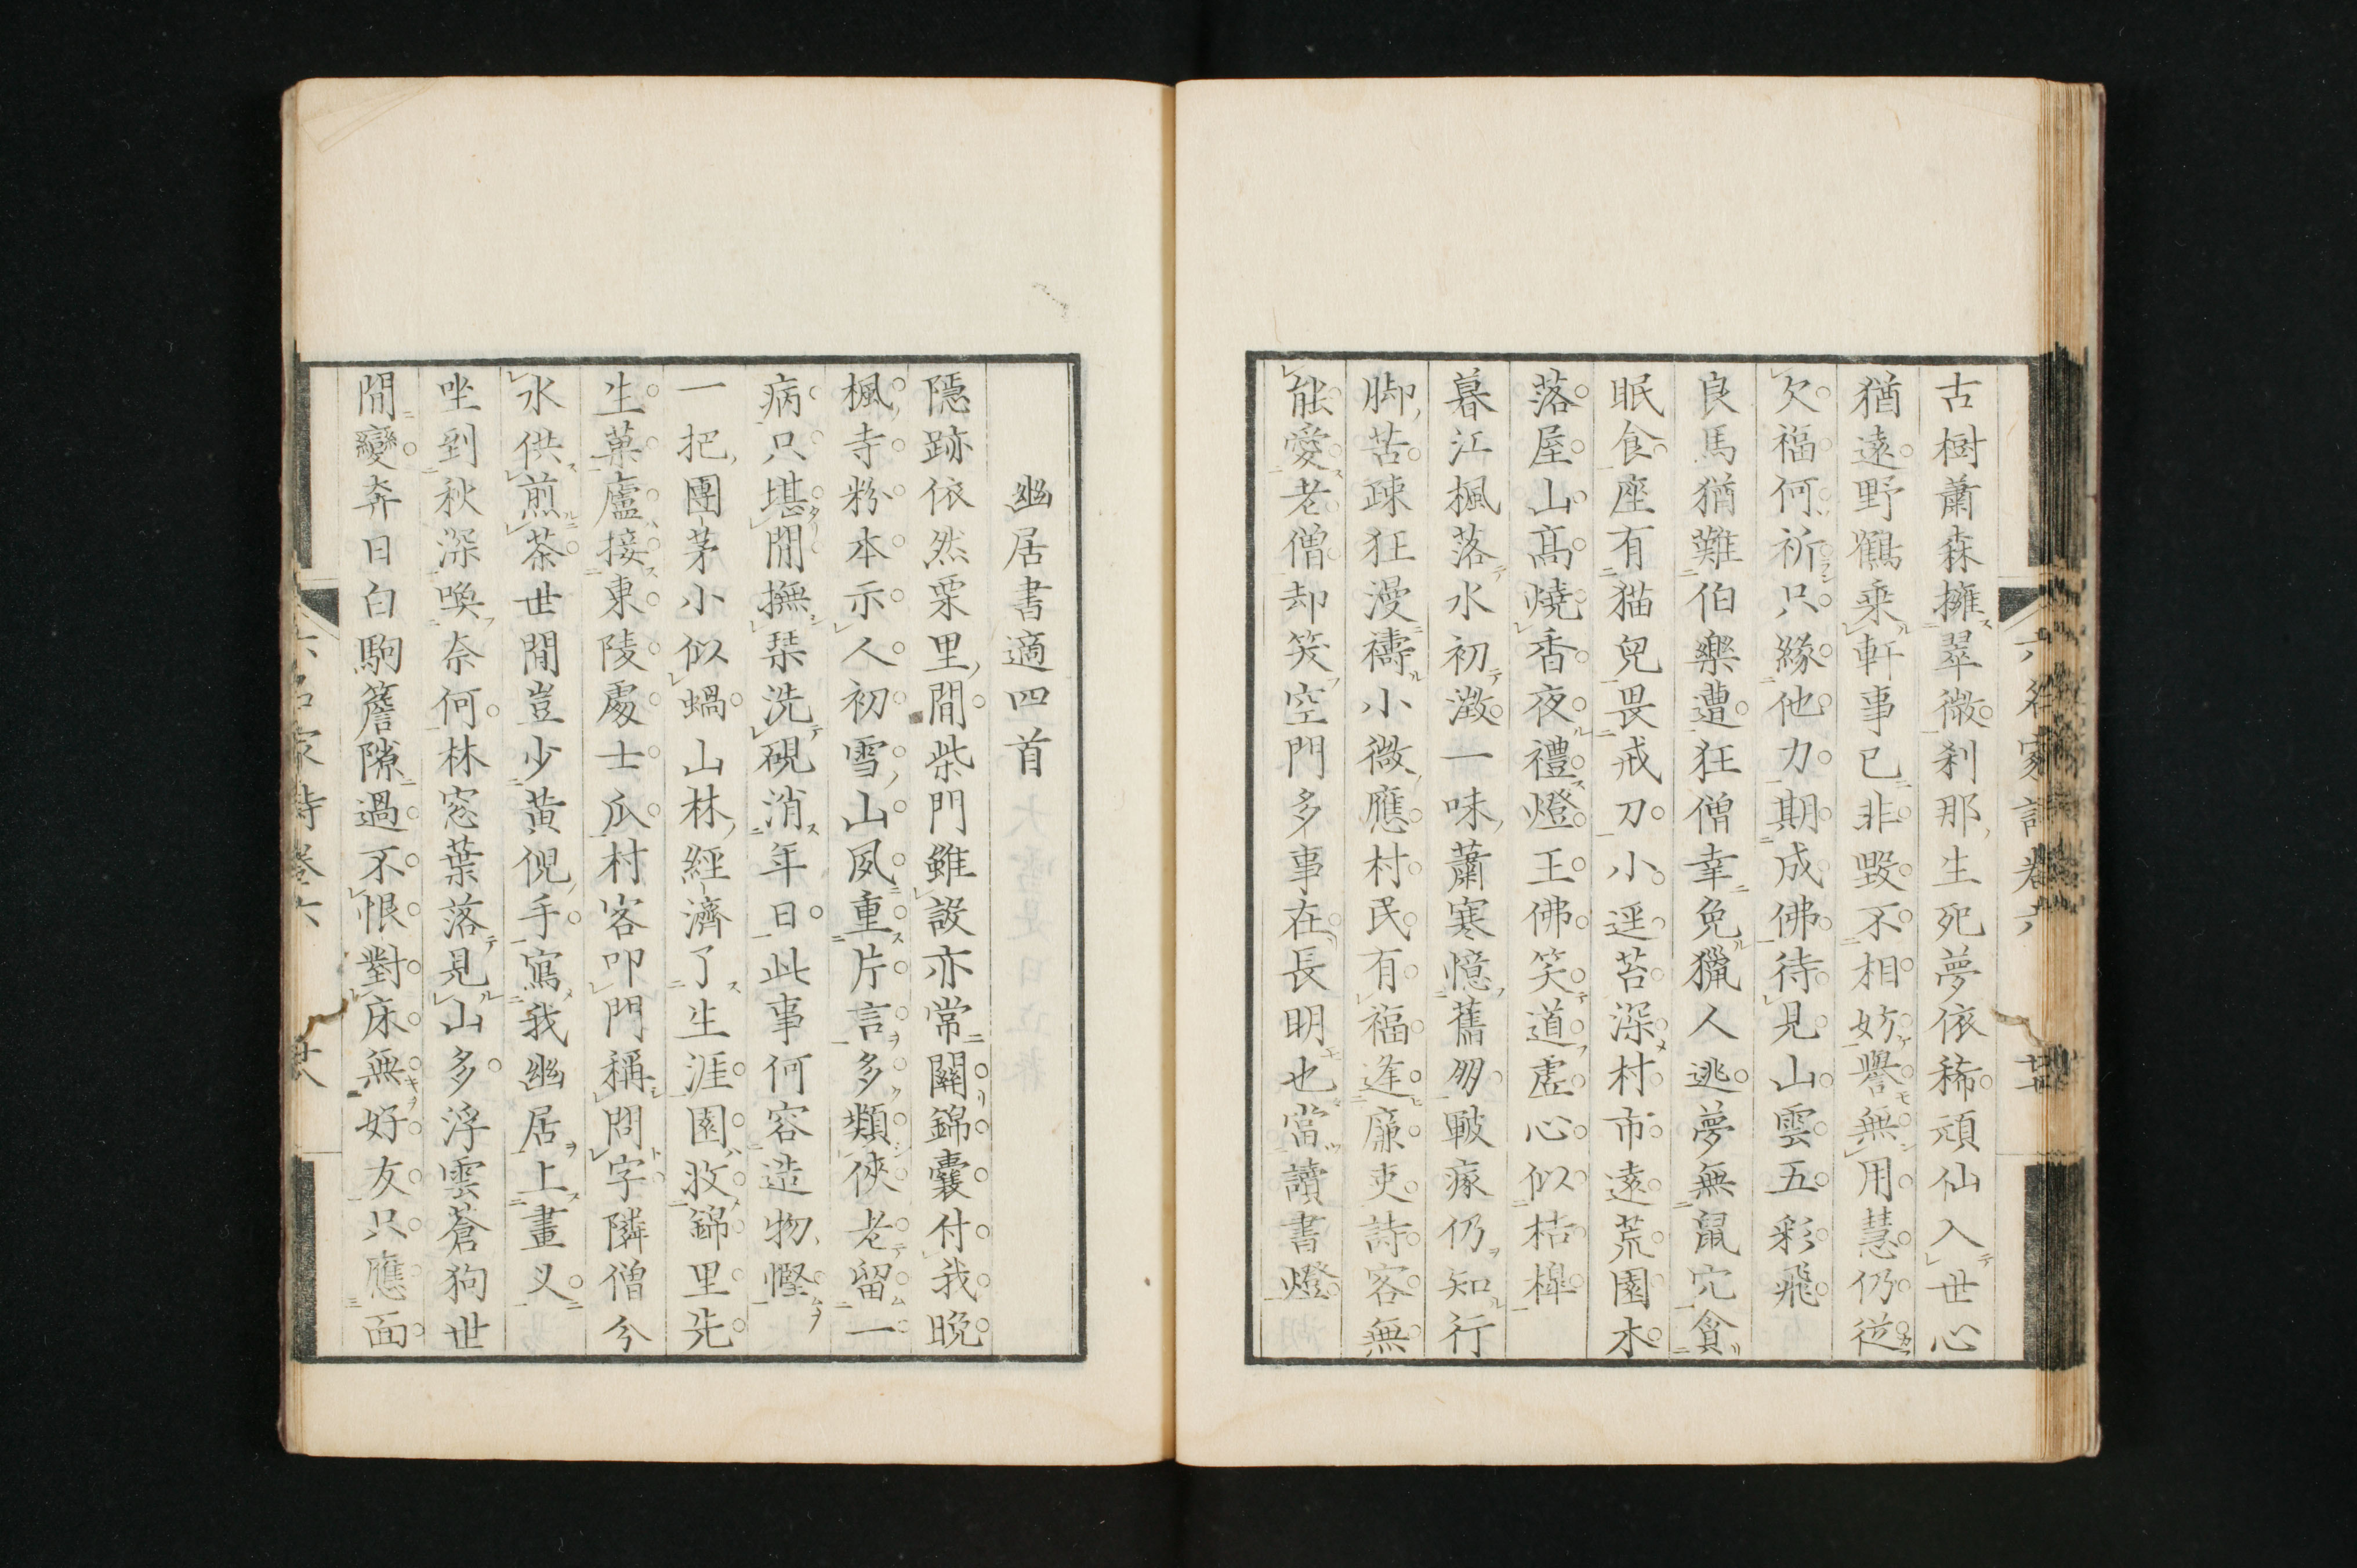 古樹蕭森擁翠微刹那生死夢依稀頑仙入世心
猶遠野鶴乘軒事已非毀不相妨譽無用慧仍從
欠福何祈只緣他力期成佛待見山雲五彩飛
良馬猶難伯樂遭狂僧幸免獵人逃夢無鼠穴貪
眠食座有猫兒畏戒刀小逕苔深村市遠荒園木
落屋山高燒香夜禮燈王佛笑道虛心似桔橰
暮江楓落水初澂一味蕭寒憶舊朋皸瘃仍知行
脚苦疎狂漫禱小微應村民有福逢廉吏詩客無
能愛老僧却笑空門多事在長明也當讀書燈
幽居書適四首
隱跡依然栗里間柴門雖設亦常關錦囊付我晩
楓寺粉本示人初雪山夙重片言多類俠老留一
病只堪閒撫琹洗硯消年日此事何容造物慳
一把團茅小似蝸山林經濟了生涯園收錦里先
生菓廬接東陵處士瓜村客叩門稱問字隣僧分
水供煎茶世間豈少黃倪手寫我幽居上畫叉
坐到秋深喚奈何林窓葉落見山多浮雲蒼狗世
間變奔日白駒簷隙過不恨對床無好友只應面
六名家詩卷六